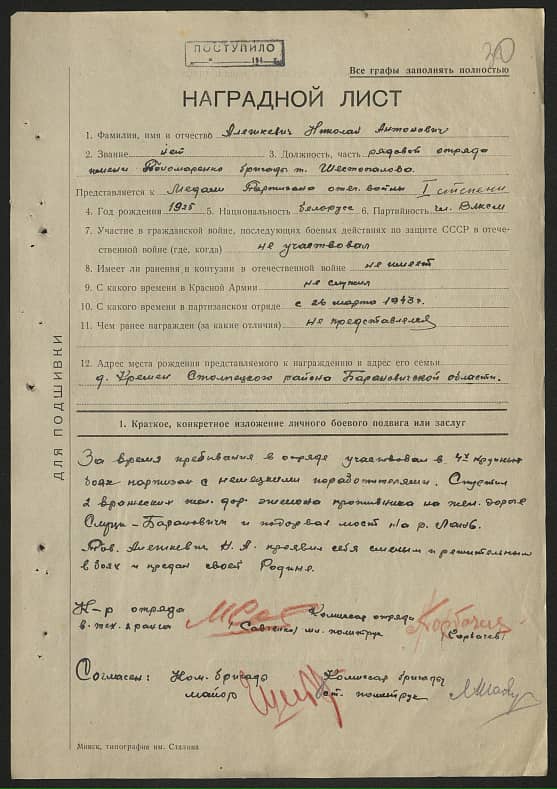 ПОСТУПИЛО
30
Все графы заполнять полностью
НАГРАДНОЙ ЛИСТ
1. Фамилия, имя и отчество Алешкевич Николай Антонович
2. Звание нет 3. Должность, часть рядовой отряда
имени Пономаренко бригады т. Шестопалова
Представляется к Медали Партизана отеч. войны I степени
4. Год рождения 1925 5. Национальность белорусс 6. Партийность чл. ВЛКСМ
7. Участие в гражданской войне, последующих боевых действиях по защите СССР в отече-
ственной войне (где, когда) не участвовал
8. Имеет ли ранения и контузии в отечественной войне не имеет
9. С какого времени в Красной Армии не служил
10. С какого времени в партизанском отряде с 26 марта 1943 г.
11. Чем ранее награжден (за какие отличия) не представлялся
12. Адрес места рождения представляемого к награждению и адрес его семьи
д. Кремен Столпецкого района Барановичской области.
1. Краткое, конкретное изложение личного боевого подвига или заслуг
За время пребывания в отряде участвовал в 4х крупных
боях партизан с немецкими поработителями. Спустил
2 вражеских жел. дор. эшелона противника на жел. дороге
Слуцк – Барановичи и подорвал мост на р. Лань.
Тов. Алешкевич Н. А. проявил себя смелым и решительным
в боях и предан своей Родине.
К-р отряда Комиссар отряда
в. тех. 2 ранга (Савченко) мл. политрук (Горбачев)
Согласен: Ком. бригады Комиссар бригады
майор ст. политрук
ДЛЯ ПОДШИВКИ
Минск, типография им. Сталина